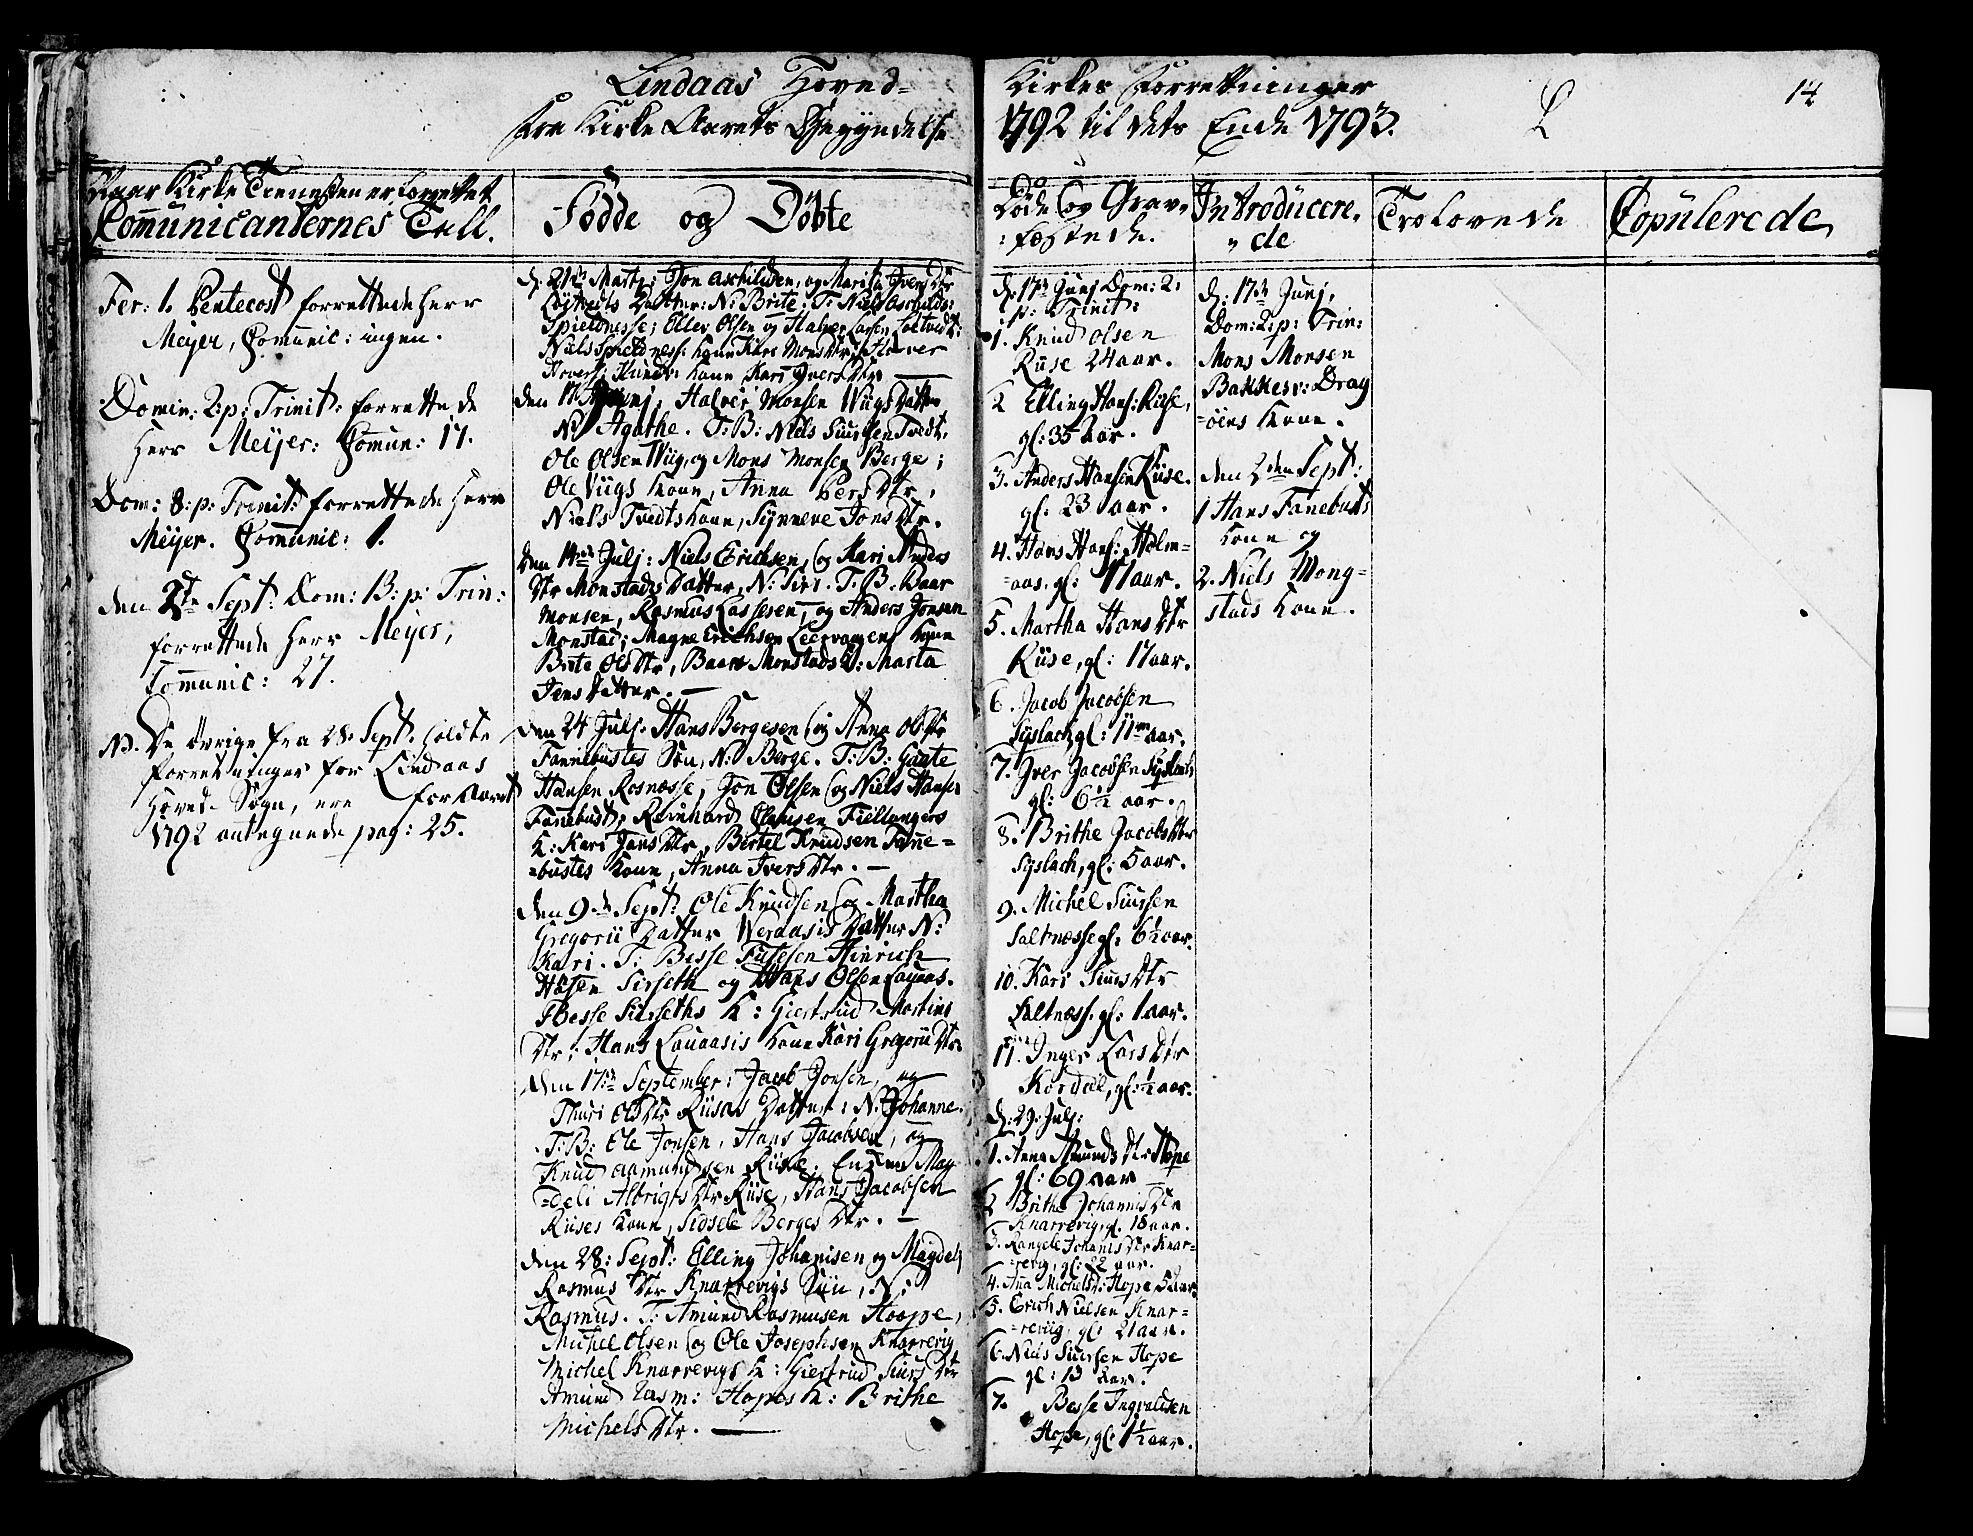 Lindaas Hoved-
Kirkes Forretninger
fra Kirke Aarets Begyndelse
1792 til dets Ende 1793.
14
Naar Kirke Tienesten er forrettet
Comunicanternes Tall.
Fer: 1. Pentecost forrettede Herr
Meyer, Comunic: ingen.
Domin: 2: p: Trinit: forrettede
Herr Meyer: Comun: 17.
Dom: 8: p: Trinit: forrettede Herr
Meyer. Comunic: 1.
den 2de Sept: Dom: 13: p: Trin:
forrettede Herr Meyer,
Comunic: 27.
NB. De øvrige fra 28. Sept. holdte
forretninger for Lindaas
Hoved-Sogn, ere for Aaret
1792 antegnede pag: 25.
Fødde og Døbte
d: 21de Marti: Jon Askildsen, og Marita Ivers Dtr
Datter: N: Brite. T: Niels Askilds:
Spieldnesse; Ellev Olsen og Halver Larsen
Niels Spieldness: Kone Kari Mons Dtr;
Kone Kari Ivers Dtr
den 17 Junj, Halver Monsen Wiigs Datter
N: Agathe. T: B: Niels Siursen Tvedt,
Ole Olsen Wiig, og Mons Monsen Berge;
Ole Viigs Kone, Anna Pers Dtr,
Niels Tvedts Kone, Synneve Jons Dtr.
den 14de Julj: Niels Erichsen, og Kari Anders
Dtr Monstads Datter, N: Siri. T. B. Baar
Monsen, Rasmus Lassesen, og Anders Jonsen
Monstad; Magne Erichsen Leervaagen Kone
Brite Ols Dtr, Baar Monstads K: Marta
Jens Datter. —
den 24 Julj. Hans Bergesen og Anna Ols Dtr
Fannebustes Søn, N: Berge. T: B: Gaute
Hansen Rosnæsse, Jon Olsen og Niels Hansen
Fannebust; Reinhard Clausen Fiellangers
K: Kari Jans Dtr, Bertel Knudsen Fanne-
=bustes Kone, Anna Ivers Dtr. —
den 9de Sept: Ole Knudsen og Martha
Gregorii Datter Weraasis Datter N:
Kari. T: Besse Hinrich
Sirseth og Hans Olsen Lauaas.
Besse Sirseths K: Giertrud Martins
Dtr; Hans Lauaasis Kone Kari Gregorii Dtr.
den 17de September: Jacob Jonsen, og
Thuri Ols Dtr Riisas Datter: N: Johanne.
T: B: Ole Jonsen, Hans Jacobsen, og
Knud Aamundsen Riise. Enchen Mag-
=deli Albrigts Dtr Riise, Hans Jacobsen
Riises Kone, Sidsele Berges Dtr. —
den 28: Sept: Elling Johanisen og Magdeli
Rasmus Dtr Knarrevigs Søn, N:
Rasmus. T: Amund Rasmusen Hoope,
Michel Olsen og Ole Josephsen Knarrevig
Michel Knarrevigs K: Giertrud Siurs Dtr
Amund Rasm: Hopes K: Brithe
Michels Dtr. —
Døde og Grav-
:fæstede.
d: 17de Junj Dom: 2:
p: Trinit:
1. Knud Olsen
Riise 24 aar.
2 Elling Hans: Riise,
gl: 35 Aar.
3. Anders Hansen Riise.
gl: 23 Aar.
4. Hans Hans: Holm-
=aas. gl: 17 aar.
5. Martha Hans Dtr
Riise, gl: 17 aar.
6. Jacob Jacobsen
Syslach, gl: 11 aar.
7. Iver Jacobsen Syslach
gl: 6½ aar.
8. Brithe Jacobs Dtr
Syslach, gl: 5 aar.
9. Michel Siursen
Saltnæsse gl: 6½ aar.
10. Kari Siurs Dtr
Saltnæss. gl: 1 aar.
11. Inger Lars Dtr
Kordal, gl: ½ aar.
d: 29. Julj:
1. Anna Amunds Dtr Hope
gl: 69 aar
2 Brithe Johannis Dtr
Knarrevig, gl. 18 aar.
3. Rangele Johanis Dtr Knar-
=revig, gl: 22 aar.
4. Ana Michels D: Hope 5 aar.
5. Erich Nielsen Knar-
=reviig, gl: 21 aar.
6. Niels Siursen Hope
gl: 13 aar.
7. Besse Ingvaldsen
Hope, gl: 1½ aar.
Introducere,
„de
d: 17de Junj,
Dom: 2: p: Trin:
Mons Monsen
Bakkes v: Drag
=øens Kone.
den 2den Sept:
1 Hans Fanebusts
Kone og
2. Niels Mong-
stads Kone.
Trolovede
Copulerede